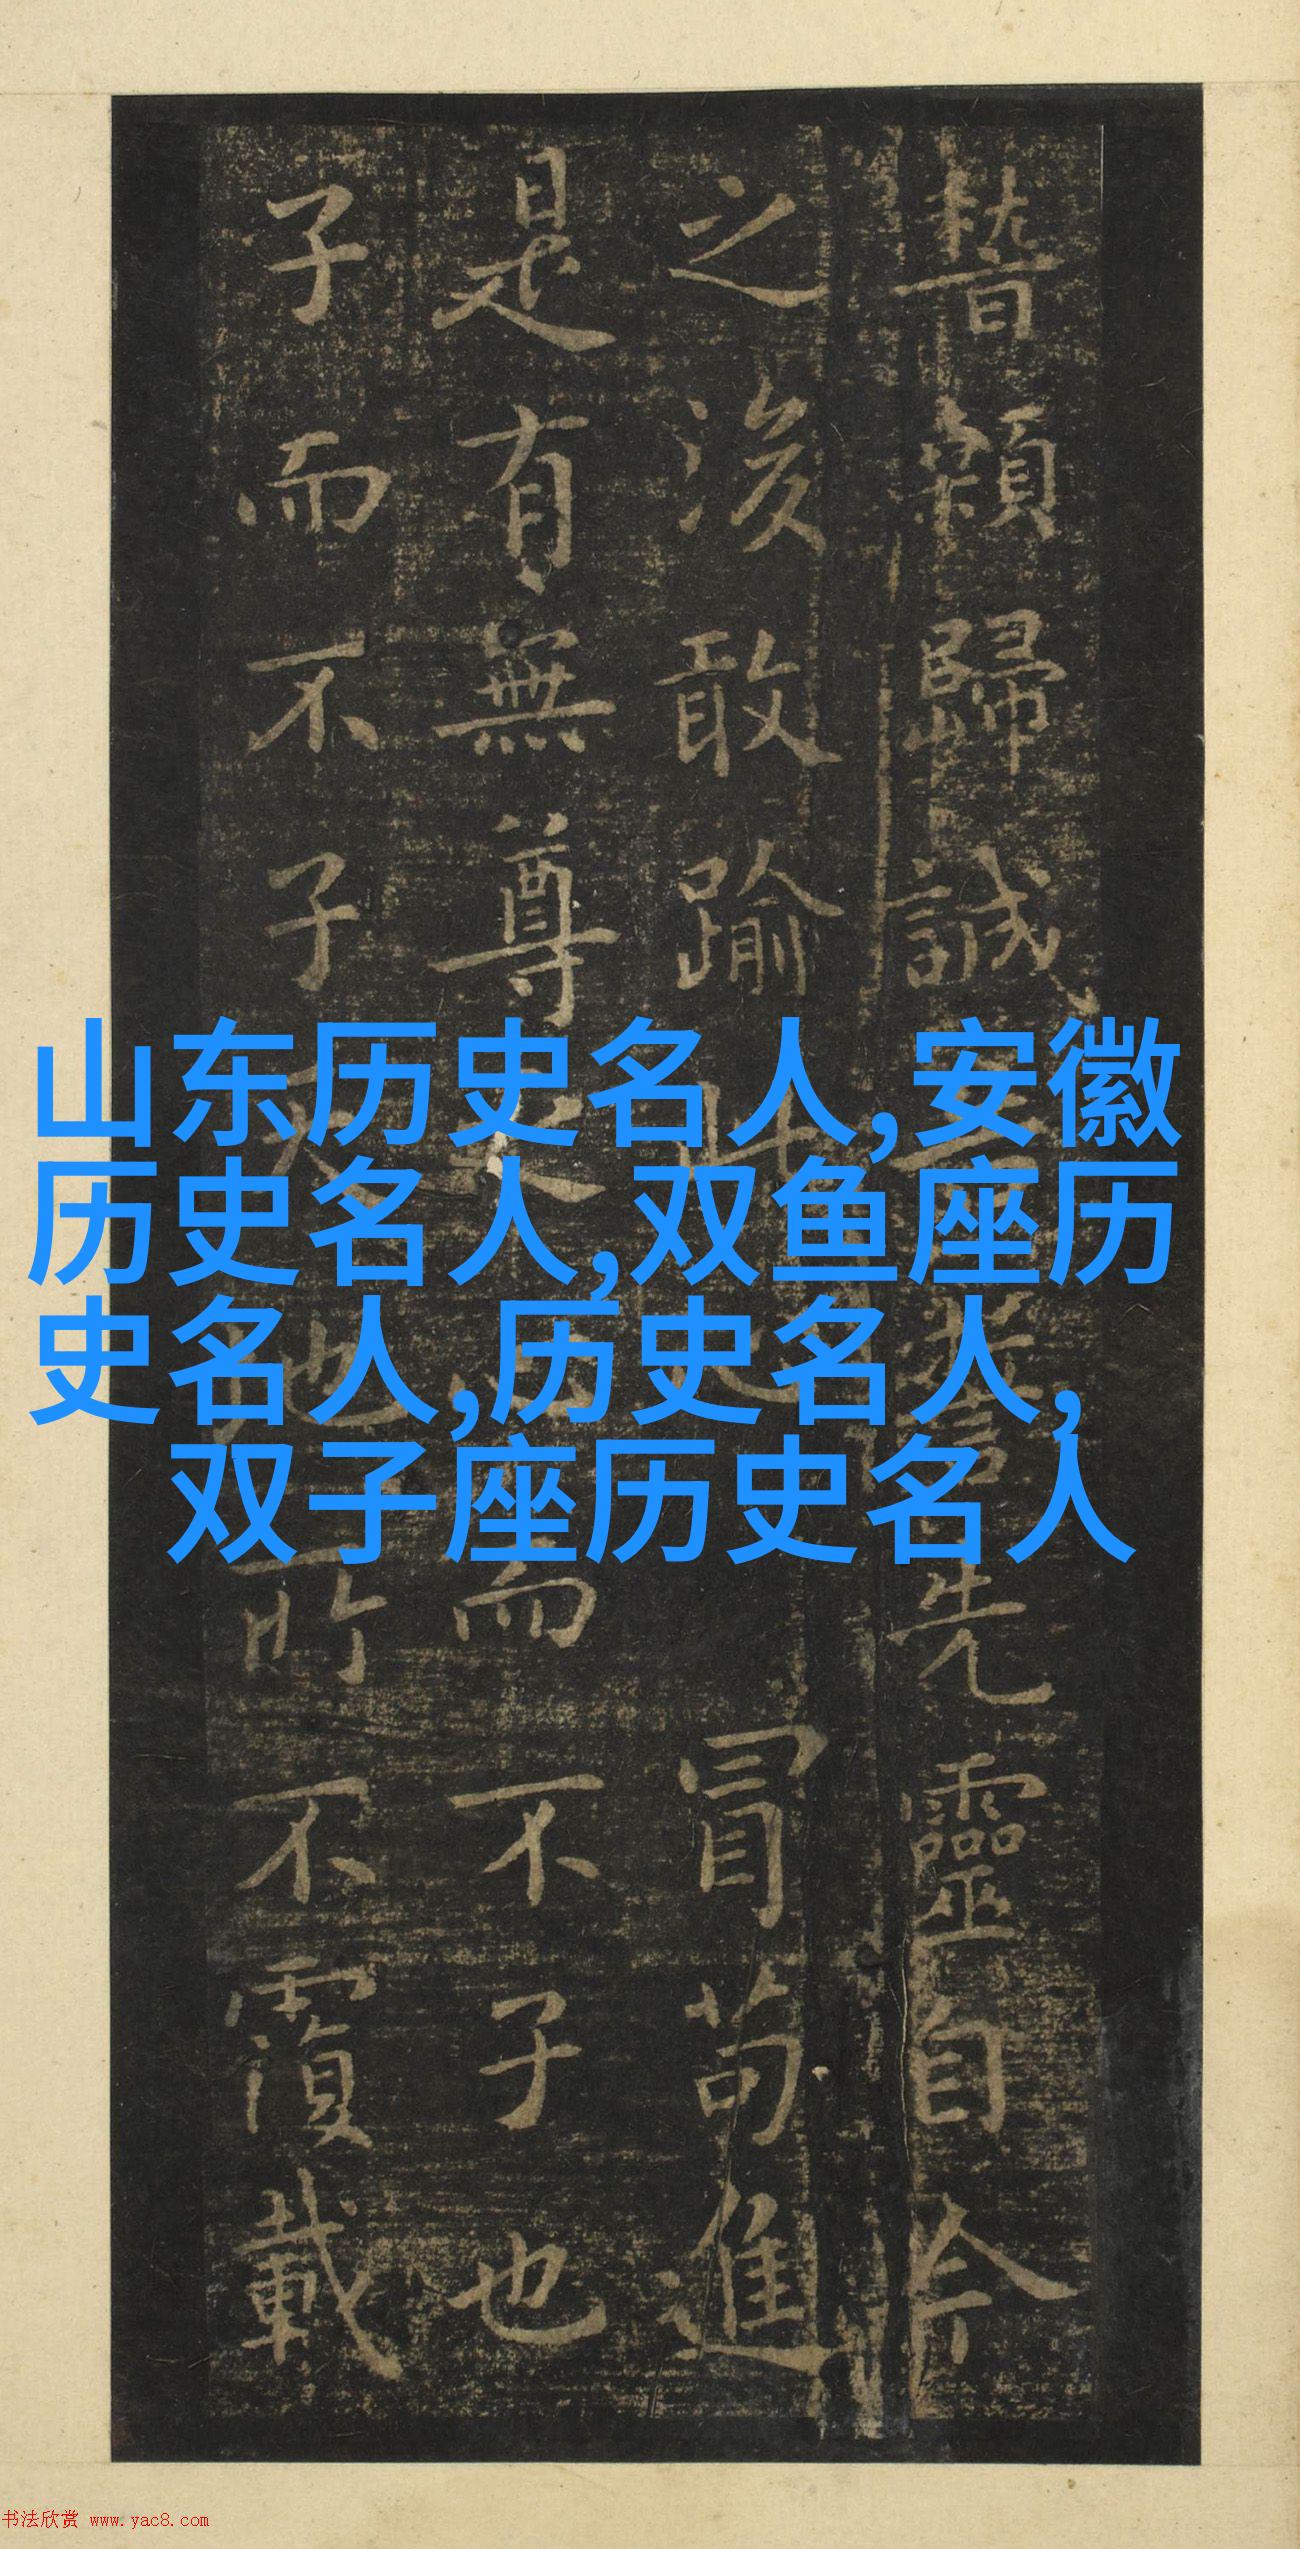 顙歸誠先靈自今
之後敢踰此冒苟進
是有無尊而不子也
子而不子地所不覆載
山东历史名人,安徽
历史名人,双鱼座历
史名人,历史名人,
双子座历史名人
书法欣赏 www.yac8.com